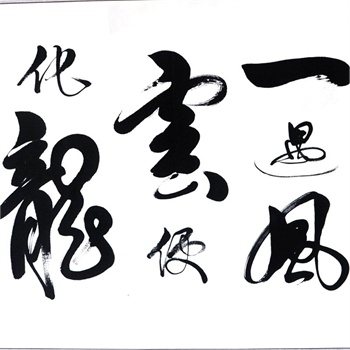 一遇風
雲便
化龍